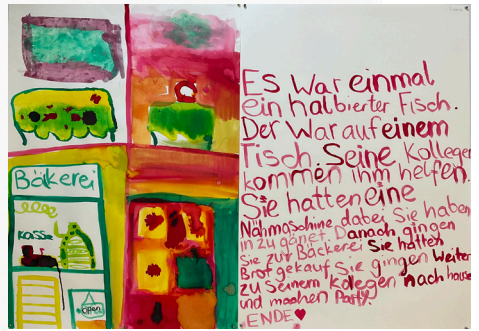 Bäkerei
Kasse
open
Es war einmal
ein halbierter Fisch.
Der war auf einem
Tisch. Seine Kollegen
kommen ihm helfen.
Sie hatten eine
Nähmaschine dabei Sie haben
in zu gänet Danach gingen
sie zur Bäckerei Sie hatten
Brot gekauf. Sie gingen weiter
zu seinem kolegen nach hause
und machen Party
ENDE♥